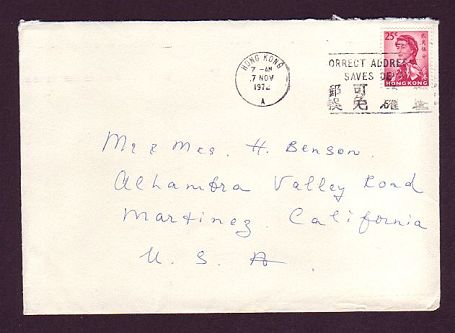 HONG KONG
7 - AM
7 NOV
197
A
ORRECT ADDRE
SAVES DE
可 郵
免 誤
25¢
HONG KONG
Mr & Mrs. H. Benson.
Alhambra Valley Road
Martinez. California
U. S. A